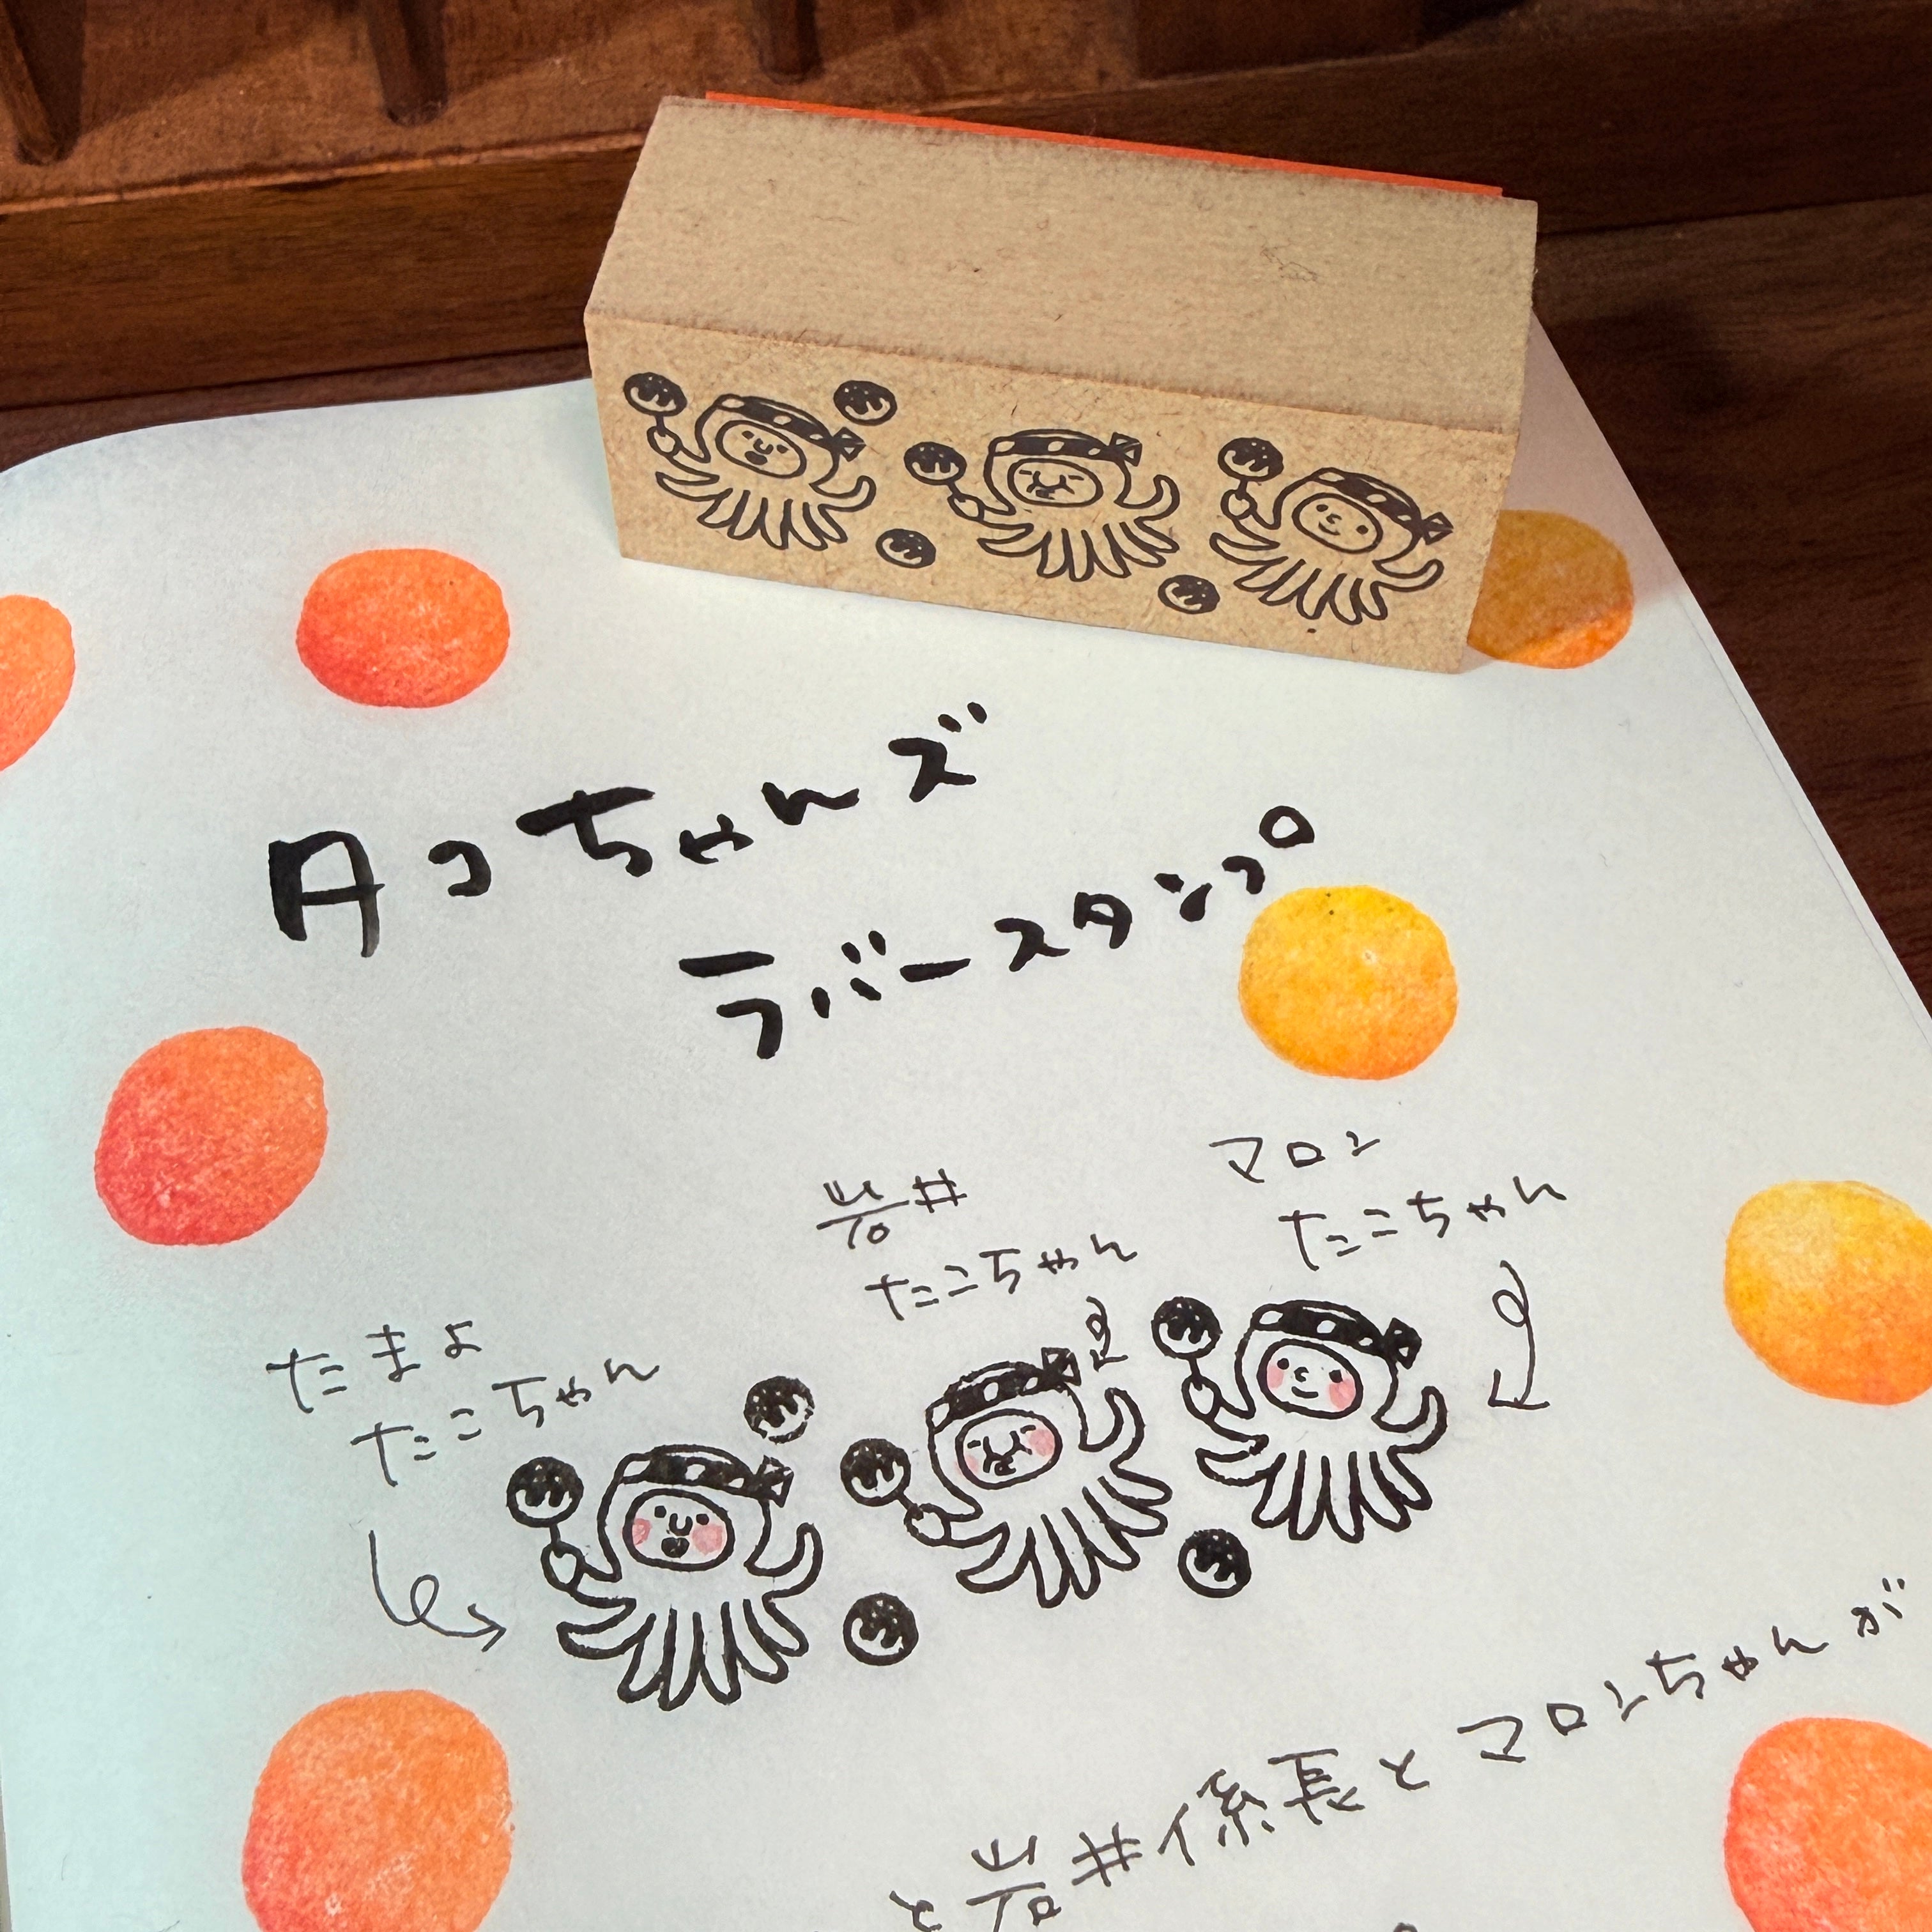 タコちゃんズ
ラバースタンプ
マロン
たこちゃん
岩井
たこちゃん
たまよ
たこちゃん
と岩井係長とマロンちゃんが